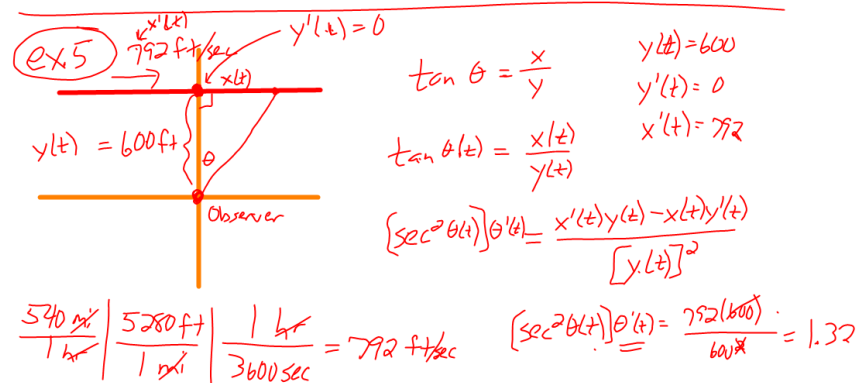 x'(t)
ex 5 792 ft/sec y'(t) = 0
x(t)
y(t) = 600 ft
θ
Observer
tan θ = x/y
y(t) = 600
y'(t) = 0
x'(t) = 792
tan θ(t) = x(t)/y(t)
[sec² θ(t)]θ'(t) = (x'(t)y(t) - x(t)y'(t))/[y(t)]²
540 mi/1 hr | 5280 ft/1 mi | 1 hr/3600 sec = 792 ft/sec
[sec² θ(t)]θ'(t) = 792(600)/600² = 1.32